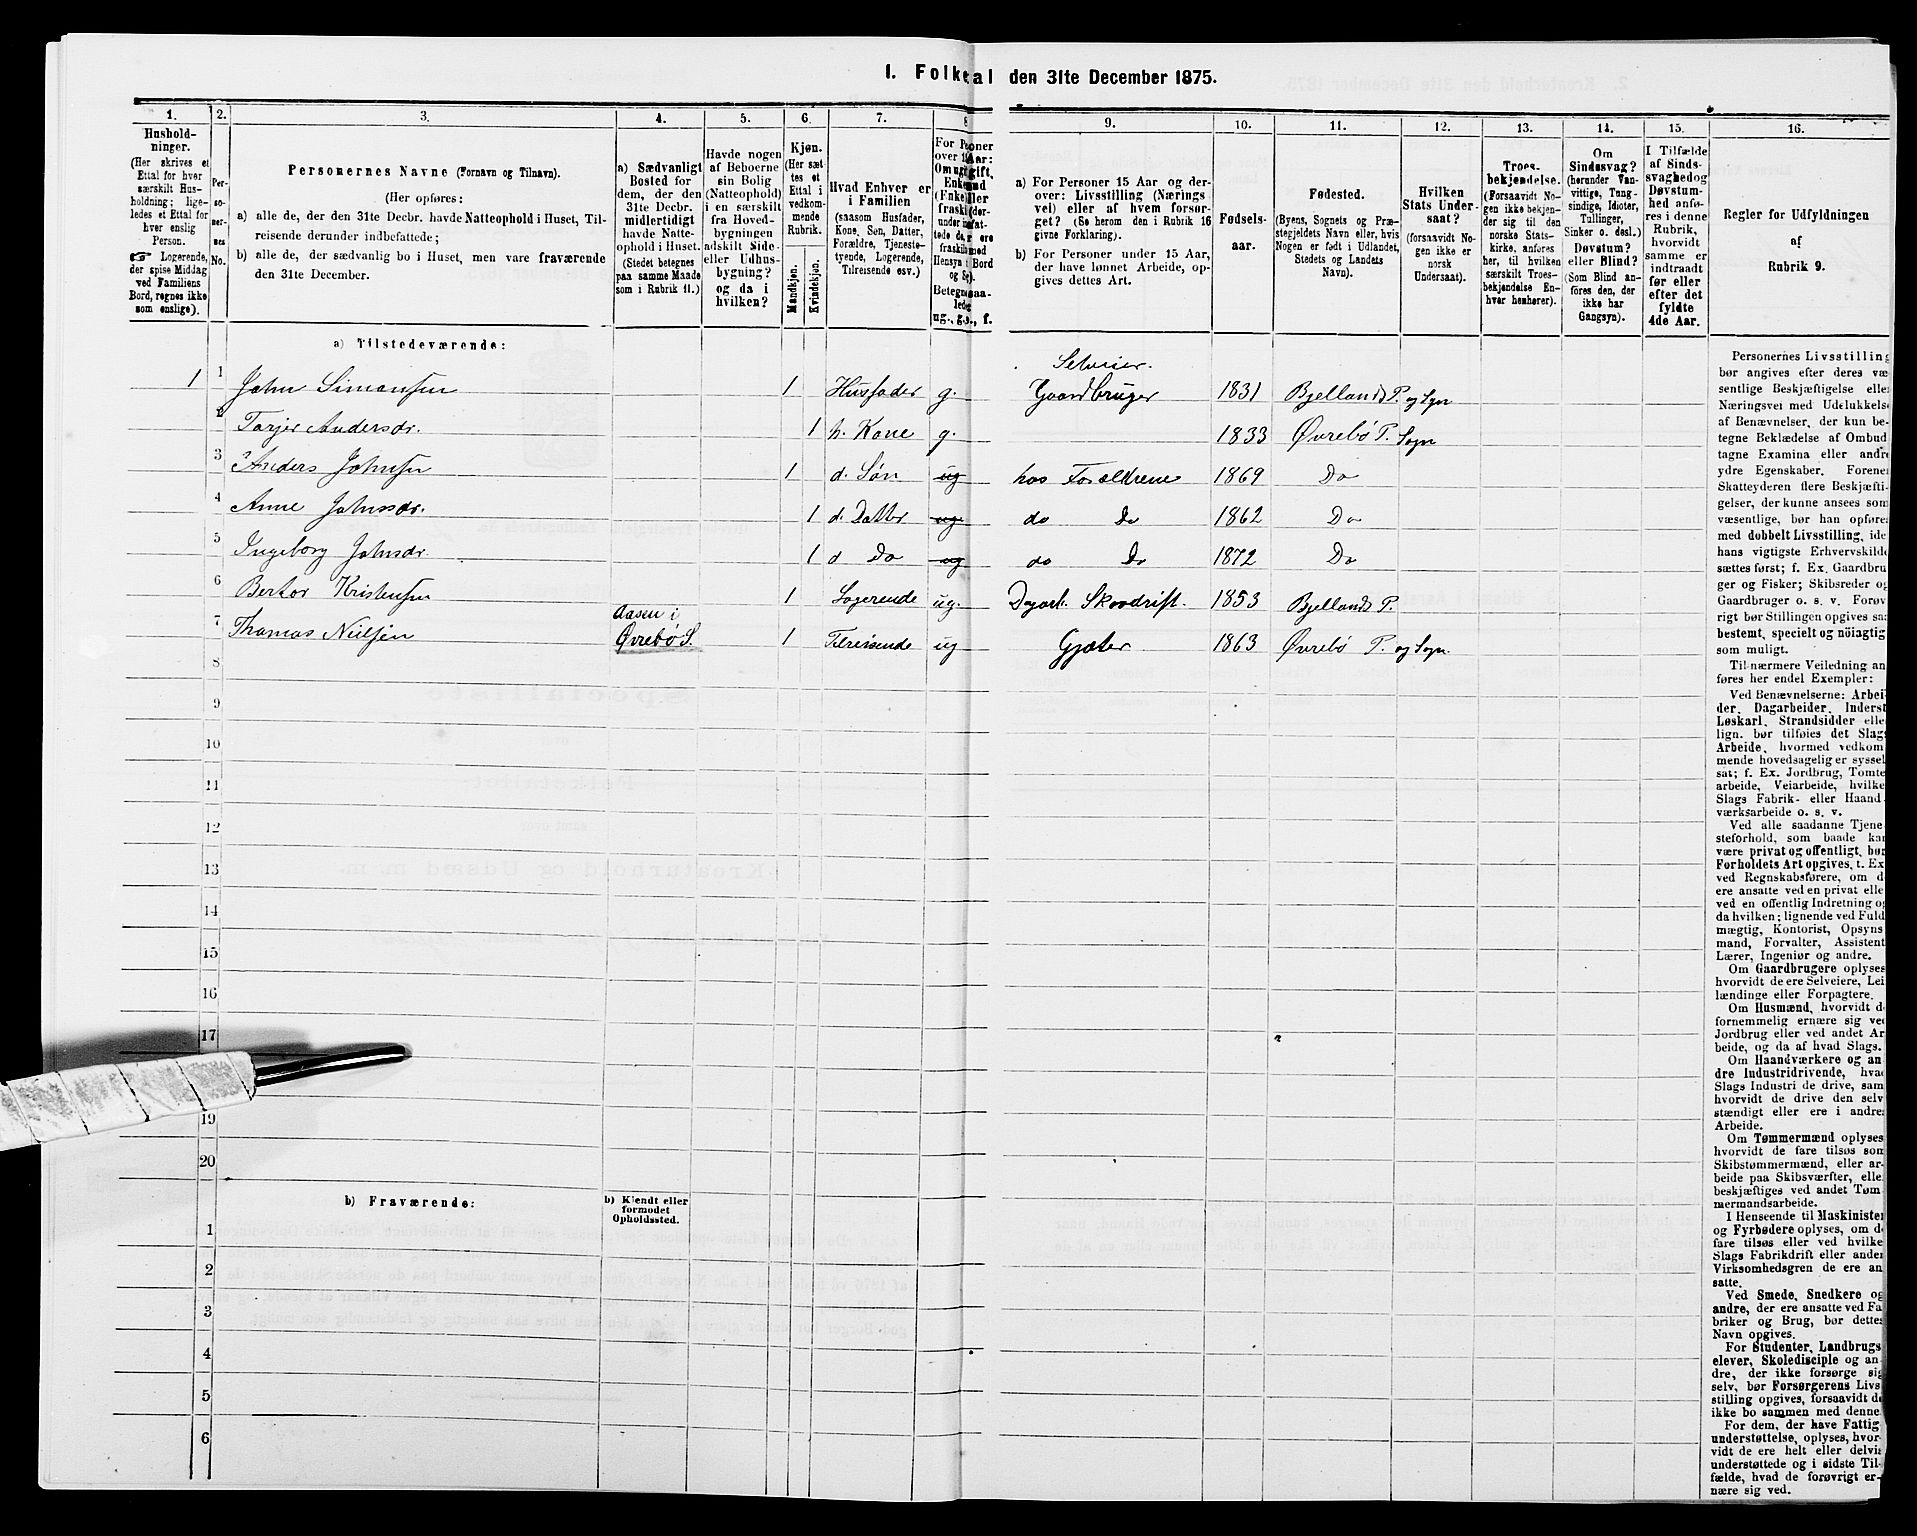 I. Folketal den 31te December 1875.
1. 2. 3. 4. 5. 6. 7. 8 9. 10. 11. 12. 13. 14. 15. 16.
Hushold-
ninger.
(Her skrives et
Ettal for hver
særskilt Hus-
holdning; lige-
ledes et Ettal for
hver enslig
Person.
Logerende,
der spise Middag
ved Familiens
Bord, regnes ikke
som enslige).
Per-
so-
ner-
nes
No.
Personernes Navne (Fornavn og Tilnavn).
(Her opføres:
a) alle de, der den 31te Decbr. havde Natteophold i Huset, Til-
reisende derunder indbefattede;
b) alle de, der sædvanlig bo i Huset, men vare fraværende
den 31te December.
a) Sædvanligt
Bosted for
dem, der den
31te Decbr.
midlertidigt
havde Natte-
ophold i Huset.
(Stedet betegnes
paa samme Maade
som i Rubrik 11.)
Havde nogen
af Beboerne
sin Bolig
(Natteophold)
i en særskilt
fra Hoved-
bygningen
adskilt Side-
eller Udhus-
bygning?
og da i
hvilken?
Kjøn.
(Her sæt-
tes et
Ettal i
vedkom-
mende
Rubrik.
Mandkjøn.
Kvindekjøn.
Hvad Enhver er
i Familien
(saasom Husfader,
Kone, Søn, Datter,
Forældre, Tjeneste-
tyende, Logerende,
Tilreisende osv.)
ug., g., f.
a) For Personer 15 Aar og der-
over: Livsstilling (Nærings
vei) eller af hvem forsør-
get? (Se herom den i Rubrik 16
givne Forklaring).
b) For Personer under 15 Aar,
der have lønnet Arbeide, op-
gives dettes Art.
Fødsels-
aar.
Fødested.
(Byens, Sognets og Præ-
stegjeldets Navn eller, hvis
Nogen er født i Udlandet,
Stedets og Landets
Navn).
Hvilken
Stats Under-
saat?
(forsaavidt No-
gen ikke er
norsk
Undersaat).
Troes-
bekjendelse.
(Forsaavidt No-
gen ikke bekjen-
der sig til den
norske Stats-
kirke, anføres
her, til hvilken
særskilt Troes-
bekjendelse En-
hver henhører).
Om
Sindssvag?
(herunder Van-
vittige, Tung-
sindige, Idioter,
Tullinger,
Sinker o. desl.)
Døvstum?
eller Blind?
(Som Blind an-
føres den, der
ikke har
Gangsyn).
I Tilfælde
af Sinds-
svaghed og
Døvstum-
hed anfø-
res i denne
Rubrik,
hvorvidt
samme er
indtraadt
før eller
efter det
fyldte
4de Aar.
Regler for Udfyldningen
af
Rubrik 9.
a) Tilstedeværende:
Selveier.
1 1 John Simonsen 1 Husfader g. Gaardbruger 1831 Bjellands P. og Sogn
2 Tarjer Andersdr. 1 h. Kone g. 1833 Øvrebø P. Sogn
3 Anders Johnsen 1 d. Søn ug hos Forældrene 1869 Do
4 Anne Johnsdr. 1 d. Datter ug do Do 1862 Do
5 Ingeborg Johnsdr. 1 d Do ug do Do 1872 Do
6 Bertor Kristensen 1 Logerende ug. Dagarb. Skovdrift. 1853 Bjellands P.
Aasen i
7 Thomas Neilsen Øvrebø S. 1 Tilreisende ug Gjæter 1863 Øvrebø P. og Sogn.
8
9
10
11
12
13
14
15
16
17
19
20
b) Fraværende:
b) Kjendt eller
formodet
Opholdssted.
1
2
3
4
5
6
Personernes Livsstilling
bør angives efter deres væ
sentlige Beskjæftigelse eller
Næringsvei med Udelukkelse
af Benævnelser, der kun be-
tegne Beklædelse af Ombud
tagne Examina eller andre
ydre Egenskaber. Forener
Skatteyderen flere Beskjæfti-
gelser, der kunne ansees som
væsentlige, bør han opføres
med dobbelt Livsstilling, ide
hans vigtigste Erhvervskilde
sættes først; f. Ex. Gaardbru-
ger og Fisker; Skibsreder og
Gaardbruger o. s. v. Forøv-
rigt bør Stillingen opgives saa
bestemt, specielt og nöiagtig
som muligt.
Til nærmere Veiledning an-
føres her endel Exempler:
Ved Benævnelserne: Arbei
der, Dagarbeider, Inderst
Løskarl, Strandsidder elle
lign. bør tilføies det Slags
Arbeide, hvormed vedkom
mende hovedsagelig er syssel
sat; f. Ex. Jordbrug, Tomte
arbeide, Veiarbeide, hvilke
Slags Fabrik- eller Haand
værksarbeide o. s. v.
Ved alle saadanne Tjene
steforhold, som baade kan
være privat og offentligt, bør
Forholdets Art opgives, t. Ex
ved Regnskabsførere, om d
ere ansatte ved en privat elle
ved en offentlig Indretning og
da hvilken; lignende ved Fuld
mægtig, Kontorist, Opsyns
mand, Forvalter, Assistent
Lærer, Ingeniør og andre.
Om Gaardbrugere oplyses
hvorvidt de ere Selveiere, Lei
lændinge eller Forpagtere.
Om Husmænd, hvorvidt d
fornemmelig ernære sig ved
Jordbrug eller ved andet Ar
beide, og da af hvad Slags.
Om Haandværkere og an
dre Industridrivende, hvad
Slags Industri de drive, sam
hvorvidt de drive den selv
stændigt eller ere i andres
Arbeide.
Om Tømmermænd oplyses
hvorvidt de fare tilsøs som
Skibstømmermænd, eller ar-
beide paa Skibsværfter, elle
beskjæftiges ved andet Tøm
mermandsarbeide.
I Henseende til Maskinister
og Fyrbødere oplyses, om d
fare tilsøs eller ved hvilke
Slags Fabrikdrift eller anden
Virksomhedsgren de ere an
satte.
Ved Smede, Snedkere og
andre, der ere ansatte ved Fa
briker og Brug, bør dettes
Navn opgives.
For Studenter, Landbrugs
elever, Skoledisciple og an-
dre, der ikke forsørge sig
selv, bør Forsørgerens Livs
stilling opgives, forsaavidt de
ikke bo sammen med denne.
For dem, der have Fattig
understøttelse, oplyses, hvor-
vidt de ere helt eller delvis
understøttede og i sidste Til-
fælde, hvad de forøvrigt er-
nære sig ved.